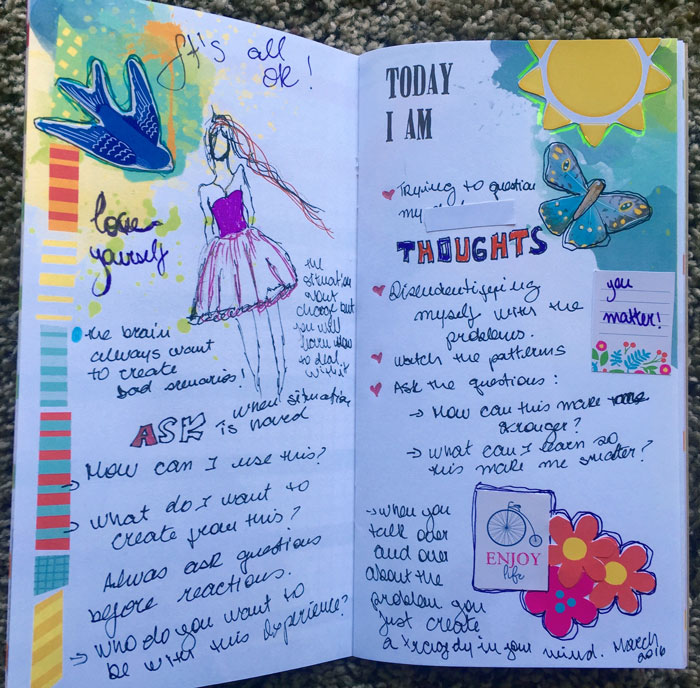 It's all
ok!
love
yourself
the
situation
want
change but
you will
learn how
to deal
with it
the brain
always want
to create
bad scenarios!
ASK when situation
is
How can I use this?
What do I want to
create from this?
Alwas ask questions
before reactions.
Who do you want to
be with this experience?
TODAY
I AM
Trying to question
my
THOUGHTS
myself with the
problems.
you
matter!
watch the patterns
Ask the questions:
How can this make
stronger?
what can I learn so
this make me smarter?
when you
talk over
and over
about the
problem you
just create
a tragedy in your mind.
ENJOY
life
March
2016